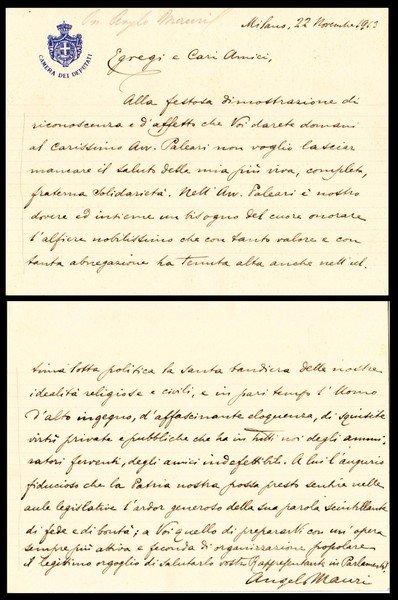 On. Angelo Mauri
CAMERA DEI DEPUTATI
Milano, 22 Novembre 1913
Egregi e Cari Amici,
Alla festosa dimostrazione di
riconoscenza e d'affetto che Voi darete domani
al carissimo Avv. Paleari non voglio lasciar
mancare il saluto della mia più viva, completa,
fraterna solidarietà. Nell'Avv. Paleari è nostro
dovere ed insieme un bisogno del cuore onorare
l'alfiere nobilissimo che con tanto valore e con
tanta abnegazione ha tenuta alta anche nell'ul-
tima lotta politica la santa bandiera delle nostre
idealità religiose e civili, e in pari tempo l'Uomo
d'alto ingegno, d'affascinante eloquenza, di squisite
virtù private e pubbliche che ha in tutti noi degli ammi-
ratori ferventi, degli amici indefettibili. A lui l'augurio
fiducioso che la Patria nostra possa presto sentire nelle
aule legislative l'ardor generoso della sua parola scintillante
di fede e di bontà; a Voi quello di prepararvi con un'opera
sempre più attiva e feconda di organizzazione popolare
il legittimo orgoglio di salutarlo vostro Rappresentante in Parlamento!
Angelo Mauri